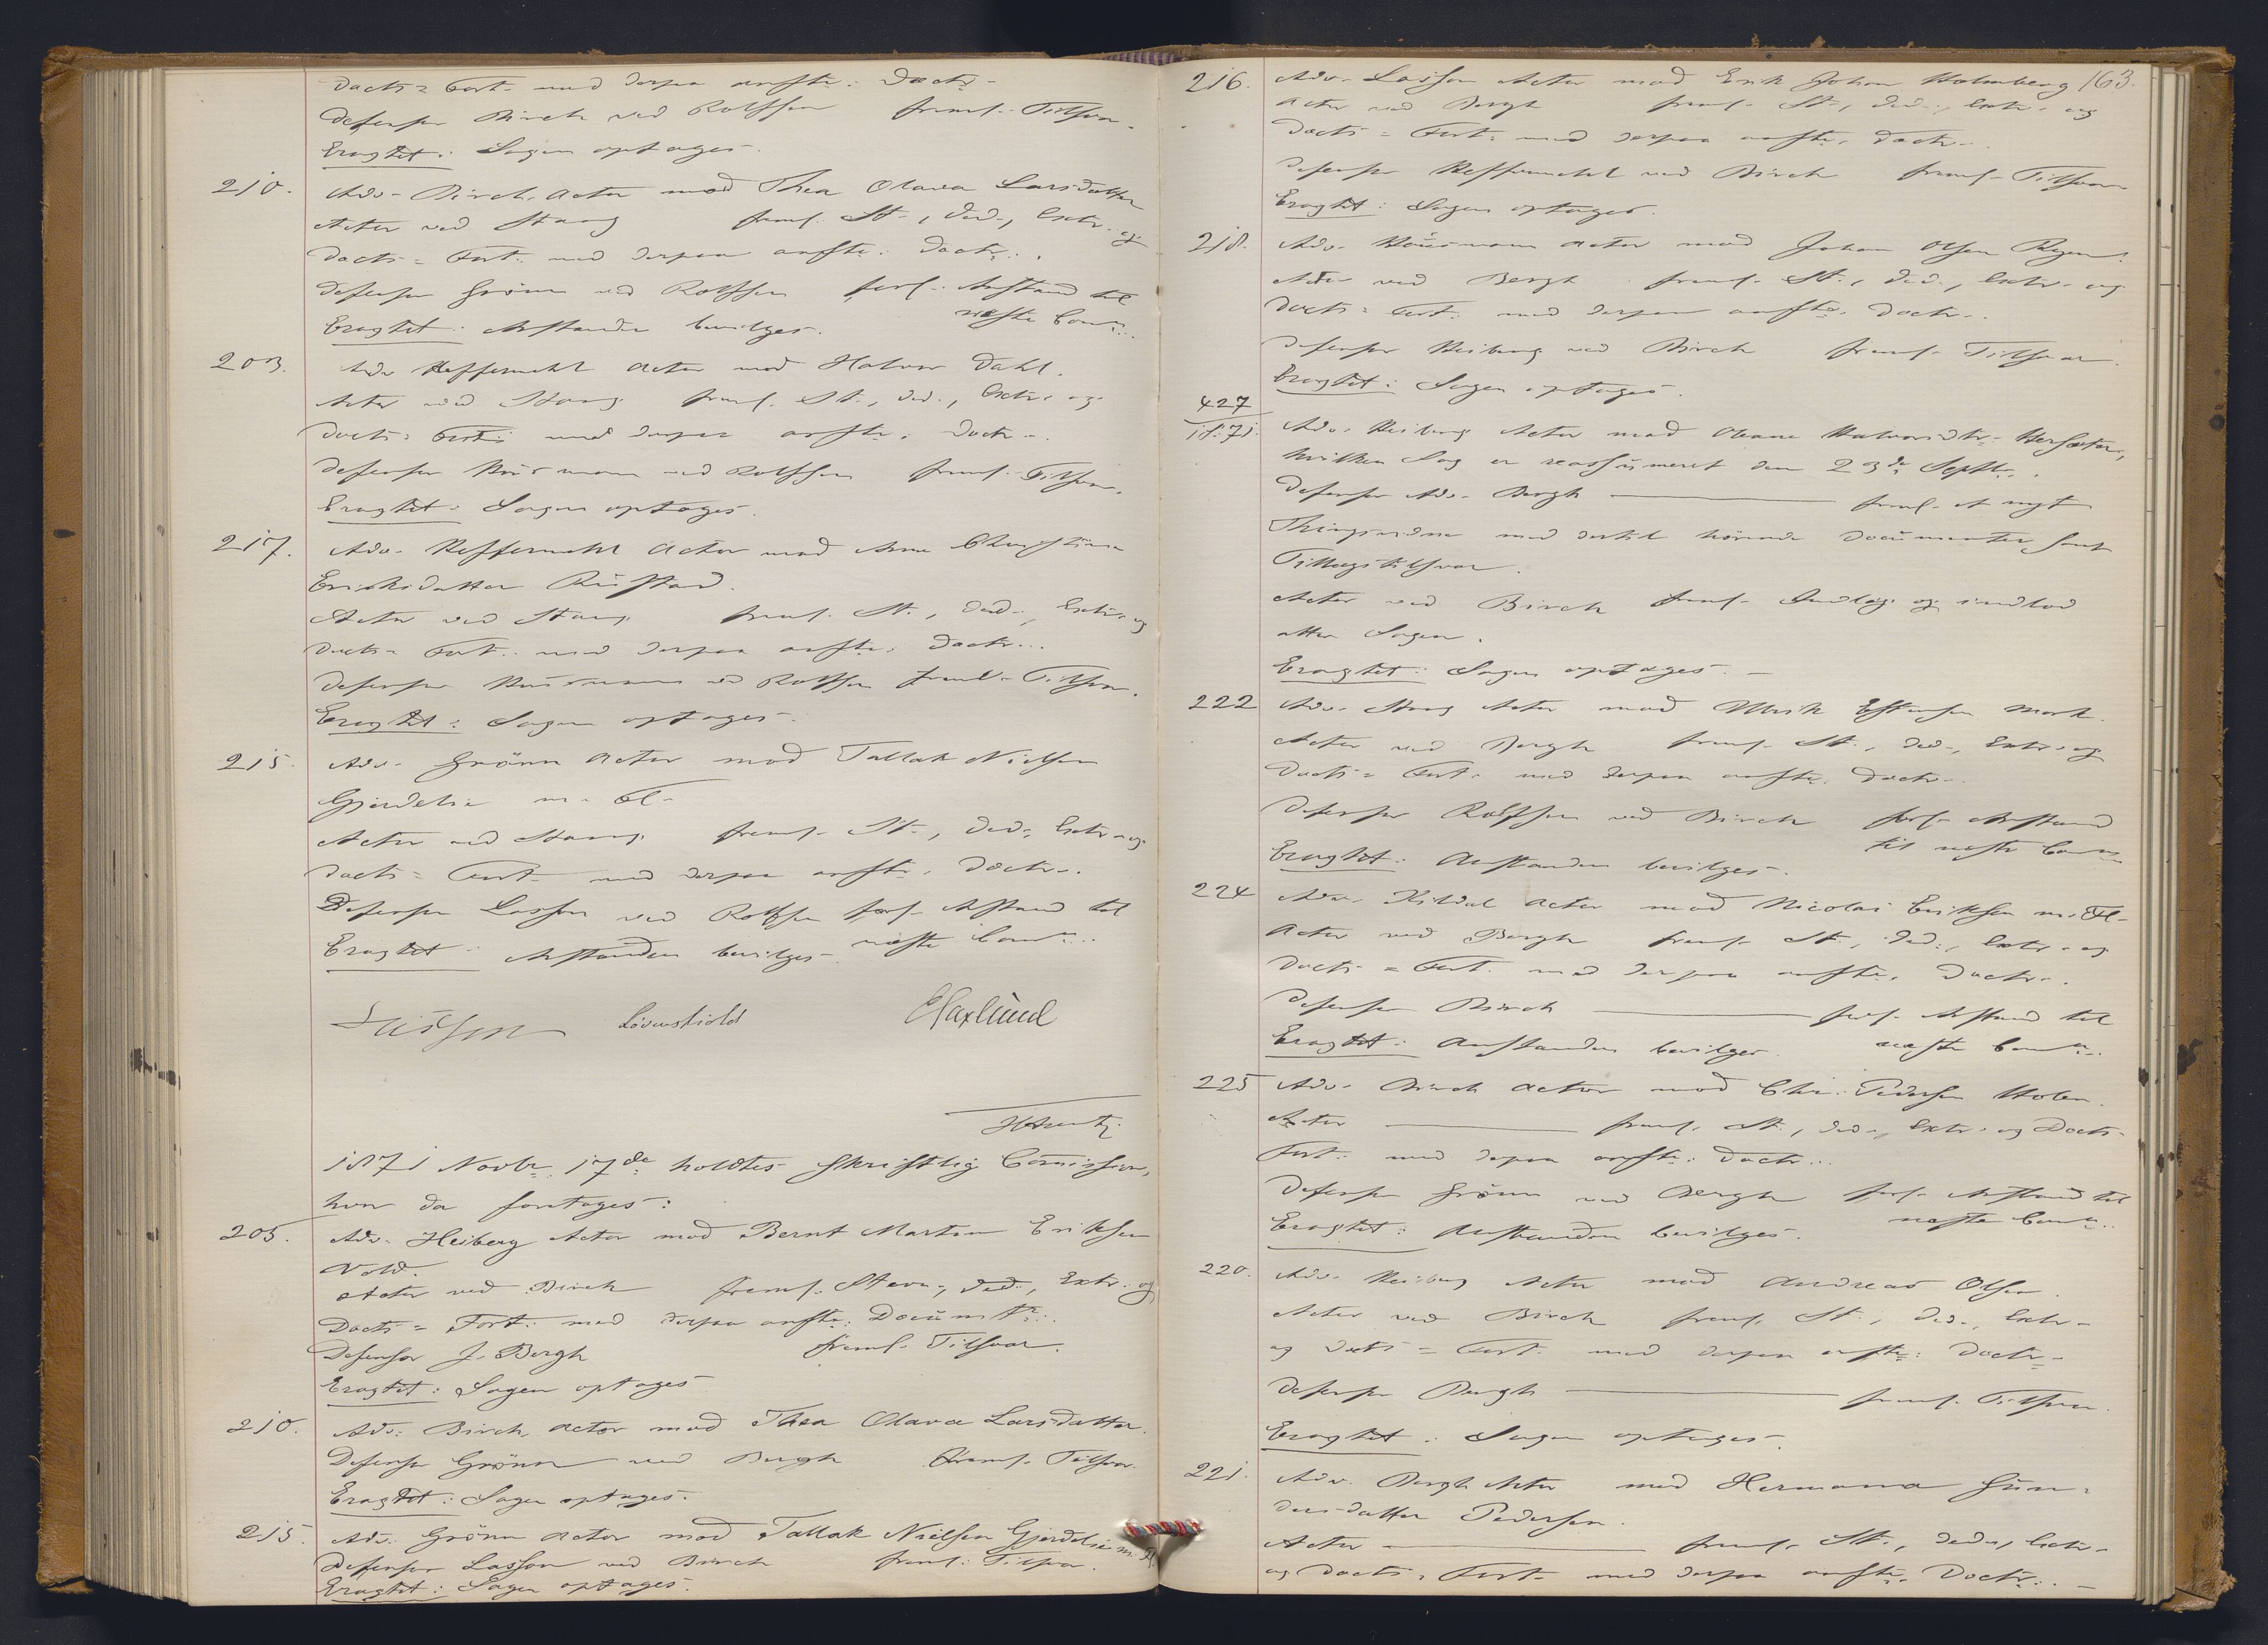 Docts = Fort. med derpaa anfte. Doctr.
Defensor Birch ved Rolfsen freml. Tilsvar.
Eragtet: Sagen optages.
210. Adv. Birch, Actor mod Thea Olava Larsdatter
Actor ved Stang freml. St., Ded., Extr. og
Docts = Fort. med derpaa anfte. Doctr.
Defensor Grönn ved Rolfsen forl. Anstand til
næste Comn.
Eragtet: Anstanden bevilges.
203. Adv. Reffermehl Actor mod Halvor Dahl.
Actor ved Stang freml. St., Ded., Extr. og
Docts = Fort. med derpaa anfte. Doctr.
Defensor ved Rolfsen freml. Tilsvar.
Eragtet: Sagen optages.
217. Adv. Reffermehl Actor mod Anne Christine
Eriksdatter Rustad.
Actor ved Stang freml. St., Ded., Extr. og
Docts = Fort. med derpaa anfte. Doctr.
Defensor ved Rolfsen freml. Tilsvar.
Eragtet: Sagen optages.
215. Adv. Grönn Actor mod Tallak Nielsen
Gjerdelie m. Fl.
Actor ved Stang freml. St., Ded., Extr. og
Docts = Fort. med derpaa anfte. Doctr.
Defensor Lasson ved Rolfsen forl. Anstand til
næste Comn.
Eragtet: Anstanden bevilges.
Lövenskiold
1871 Novbr. 17de holdtes skriftlig Comission,
hvor da foretages:
205. Adv. Heiberg Actor mod Bernt Martin Eriksen
Vold.
Actor ved Birch freml. Stevn., Ded., Extr. og
Docts = Fort. med derpaa anfte. Documtr.
Defensor J. Bergh freml. Tilsvar.
Eragtet: Sagen optages
210. Adv. Birch, Actor mod Thea Olava Larsdatter.
Defensor Grönn ved Bergh freml. Tilsvar.
Eragtet: Sagen optages.
215. Adv. Grönn Actor mod Tallak Nielsen Gjerdelie m. Fl.
Defensor Lasson ved Birch freml. Tilsvar.
Eragtet: Sagen optages.
163.
216. Adv. Lasson Actor mod Erik Johan Holmberg
Actor ved Bergh freml. St., Ded., Extr. og
Docts = Fort. med derpaa anfte. Doctr.
Defensor Reffermehl ved Birch freml. Tilsvar
Eragtet: Sagen optages.
218. Adv. Actor mod Johan Olsen
Actor ved Bergh freml. St., Ded., Extr. og
Docts = Fort. med derpaa anfte. Doctr.
Defensor Heiberg ved Birch freml. Tilsvar.
Eragtet: Sagen optages.
427
1871. Adv. Heiberg Actor mod Halvorsdtr.
hvilken Sag er reassumeret den 23de Septbr.
Defensor Adv. Bergh freml. et nyt
Thingsvidne med dertil hörende Documenter samt
Tillægstilsvar.
Actor ved Birch freml. Indlæg og indlod
atter Sagen.
Eragtet: Sagen optages.
222 Adv. Stang Actor mod Ulrik Estensen Mork.
Actor ved Bergh freml. St., Ded., Extr. og
Docts = Fort. med derpaa anfte. Doctr.
Defensor Rolfsen ved Birch forl. Anstand
til næste Comn.
Eragtet: Anstanden bevilges.
224 Adv. Kildal Actor mod Nicolai Eriksen m. Fl.
Actor ved Bergh freml. St., Ded., Extr. og
Docts = Fort. med derpaa anfte. Doctr.
Defensor Birch forl. Anstand til
næste Comn.
Eragtet: Anstanden bevilges.
225 Adv. Birch Actor mod Chr. Pedersen Holen.
Actor freml. St., Ded., Extr. og Docts
Fort. med derpaa anfte. Doctr.
Defensor Grönn ved Bergh forl. Anstand til
næste Comn.
Eragtet: Anstanden bevilges.
220. Adv. Heiberg Actor mod Andreas Olsen.
Actor ved Birch freml. St., Ded., Extr.
og Docts = Fort. med derpaa anfte. Doctr.
Defensor Bergh freml. Tilsvar.
Eragtet: Sagen optages.
221. Adv. Bergh Actor mod Hermana Gun-
dersdatter Pedersen.
Actor freml. St., Ded., Extr.
og Docts = Fort. med derpaa anfte. Doctr.